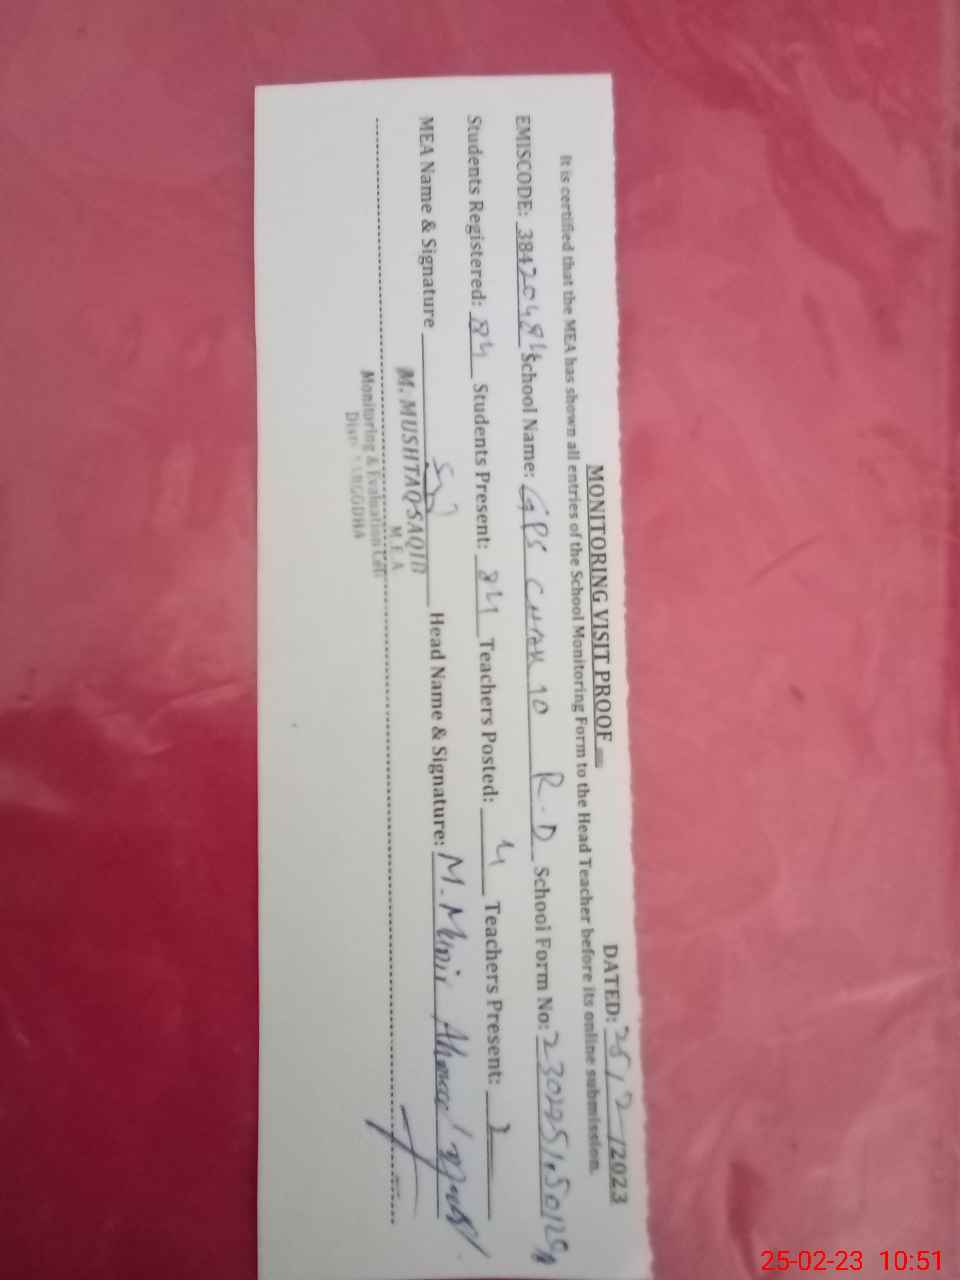 MONITORING VISIT PROOF DATED: 25/2/2023
It is certified that the MEA has shown all entries of the School Monitoring Form to the Head Teacher before its online submission.
EMISCODE: 38420484 School Name: GPS CHAK 10 R.D School Form No:
Students Registered: 84 Students Present: 84 Teachers Posted: 4 Teachers Present:
MEA Name & Signature Head Name & Signature: M. Munir Ahmad
M. MUSHTAQ SAQIB
M.E.A
Monitoring & Evaluation Cell
SARGODHA
25-02-23 10:51